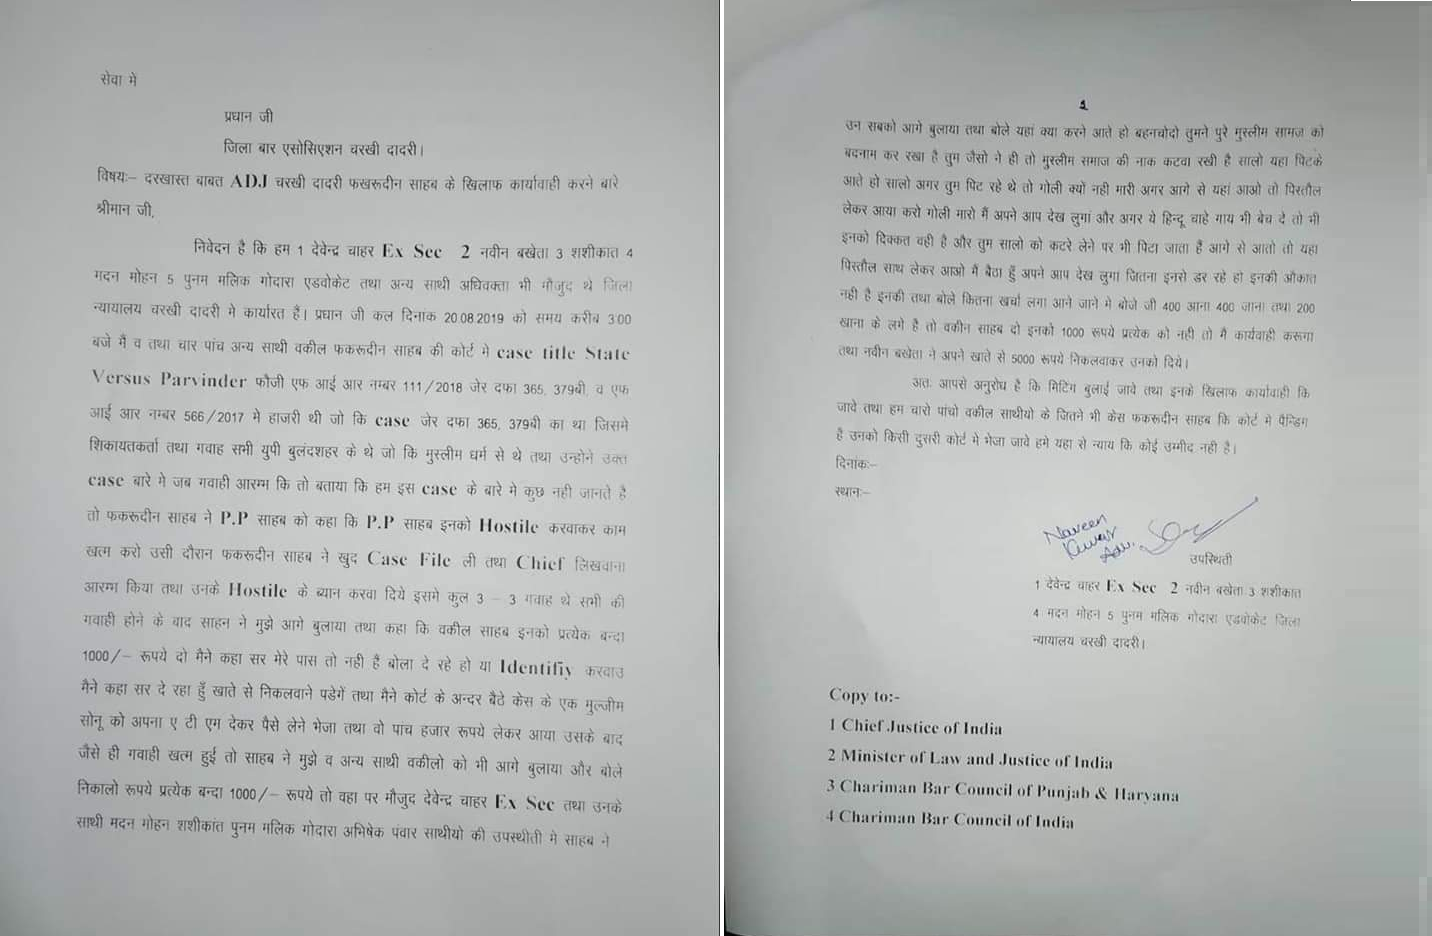 सेवा मे
प्रधान जी
जिला बार एसोसिएशन चरखी दादरी।
विषयः– दरखास्त बाबत ADJ चरखी दादरी फखरूदीन साहब के खिलाफ कार्यावाही करने बारे
श्रीमान जी,
निवेदन है कि हम 1 देवेन्द्र चाहर Ex Sec 2 नवीन बखेता 3 शशीकात 4
मदन मोहन 5 पुनम मलिक गोदारा एडवोकेट तथा अन्य साथी अधिवक्ता भी मौजुद थे जिला
न्यायालय चरखी दादरी मे कार्यारत हैं। प्रधान जी कल दिनाक 20.08.2019 को समय करीब 3:00
बजे मैं व तथा चार पांच अन्य साथी वकील फकरूदीन साहब की कोर्ट मे case title State
Versus Parvinder फौजी एफ आई आर नम्बर 111/2018 जेर दफा 365, 379बी, व एफ
आई आर नम्बर 566/2017 मे हाजरी थी जो कि case जेर दफा 365, 379बी का था जिसमे
शिकायतकर्ता तथा गवाह सभी युपी बुलंदशहर के थे जो कि मुस्लीम धर्म से थे तथा उन्होने उक्त
case बारे मे जब गवाही आरम्भ कि तो बताया कि हम इस case के बारे मे कुछ नही जानते है
तो फकरूदीन साहब ने P.P साहब को कहा कि P.P साहब इनको Hostile करवाकर काम
खत्म करो उसी दौरान फकरूदीन साहब ने खुद Case File ली तथा Chief लिखवाना
आरम्भ किया तथा उनके Hostile के ब्यान करवा दिये इसमे कुल 3 – 3 गवाह थे सभी की
गवाही होने के बाद साहन ने मुझे आगे बुलाया तथा कहा कि वकील साहब इनको प्रत्येक बन्दा
1000/– रूपये दो मैने कहा सर मेरे पास तो नही हैं बोला दे रहे हो या Identifiy करवाउ
मैने कहा सर दे रहा हुँ खाते से निकलवाने पडेगें तथा मैने कोर्ट के अन्दर बैठे केस के एक मुल्जीम
सोनू को अपना ए टी एम देकर पैसे लेने भेजा तथा वो पाच हजार रूपये लेकर आया उसके बाद
जैसे ही गवाही खत्म हुई तो साहब ने मुझे व अन्य साथी वकीलो को भी आगे बुलाया और बोले
निकालो रूपये प्रत्येक बन्दा 1000/– रूपये तो वहा पर मौजुद देवेन्द्र चाहर Ex Sec तथा उनके
साथी मदन मोहन शशीकांत पुनम मलिक गोदारा अभिषेक पंवार साथीयो की उपस्थीती मे साहब ने
उन सबको आगे बुलाया तथा बोले यहां क्या करने आते हो बहनचोदो तुमने पुरे मुस्लीम सामज को
बदनाम कर रखा है तुम जैसो ने ही तो मुस्लीम समाज की नाक कटवा रखी है सालो यहा पिटके
आते हो सालो अगर तुम पिट रहे थे तो गोली क्यों नही मारी अगर आगे से यहां आओ तो पिस्तौल
लेकर आया करो गोली मारो मैं अपने आप देख लुगां और अगर ये हिन्दू चाहे गाय भी बेच दे तो भी
इनको दिक्कत वही है और तुम सालो को कटरे लेने पर भी पिटा जाता हैं आगे से आतो तो यहा
पिस्तौल साथ लेकर आओ मैं बैठा हुँ अपने आप देख लुगा जितना इनसे डर रहे हो इनकी औकात
नही है इनकी तथा बोले कितना खर्चा लगा आने जाने मे बोजे जी 400 आना 400 जाना तथा 200
खाना के लगे है तो वकीन साहब दो इनको 1000 रूपये प्रत्येक को नही तो मै कार्यवाही करूगा
तथा नवीन बखेता ने अपने खाते से 5000 रूपये निकलवाकर उनको दिये।
अतः आपसे अनुरोध है कि मिटिग बुलाई जावे तथा इनके खिलाफ कार्यावाही कि
जावे तथा हम चारो पांचो वकील साथीयो के जितने भी केस फकरूदीन साहब कि कोर्ट मे पैन्डिग
है उनको किसी दुसरी कोर्ट मे भेजा जावे हमे यहा से न्याय कि कोई उम्मीद नही है।
दिनाकः–
स्थानः–
Naveen
Kumar
Adv.
उपस्थिती
1 देवेन्द्र चाहर Ex Sec 2 नवीन बखेता 3 शशीकात
4 मदन मोहन 5 पुनम मलिक गोदारा एडवोकेट जिला
न्यायालय चरखी दादरी।
Copy to:-
1 Chief Justice of India
2 Minister of Law and Justice of India
3 Chariman Bar Council of Punjab & Haryana
4 Chariman Bar Council of India